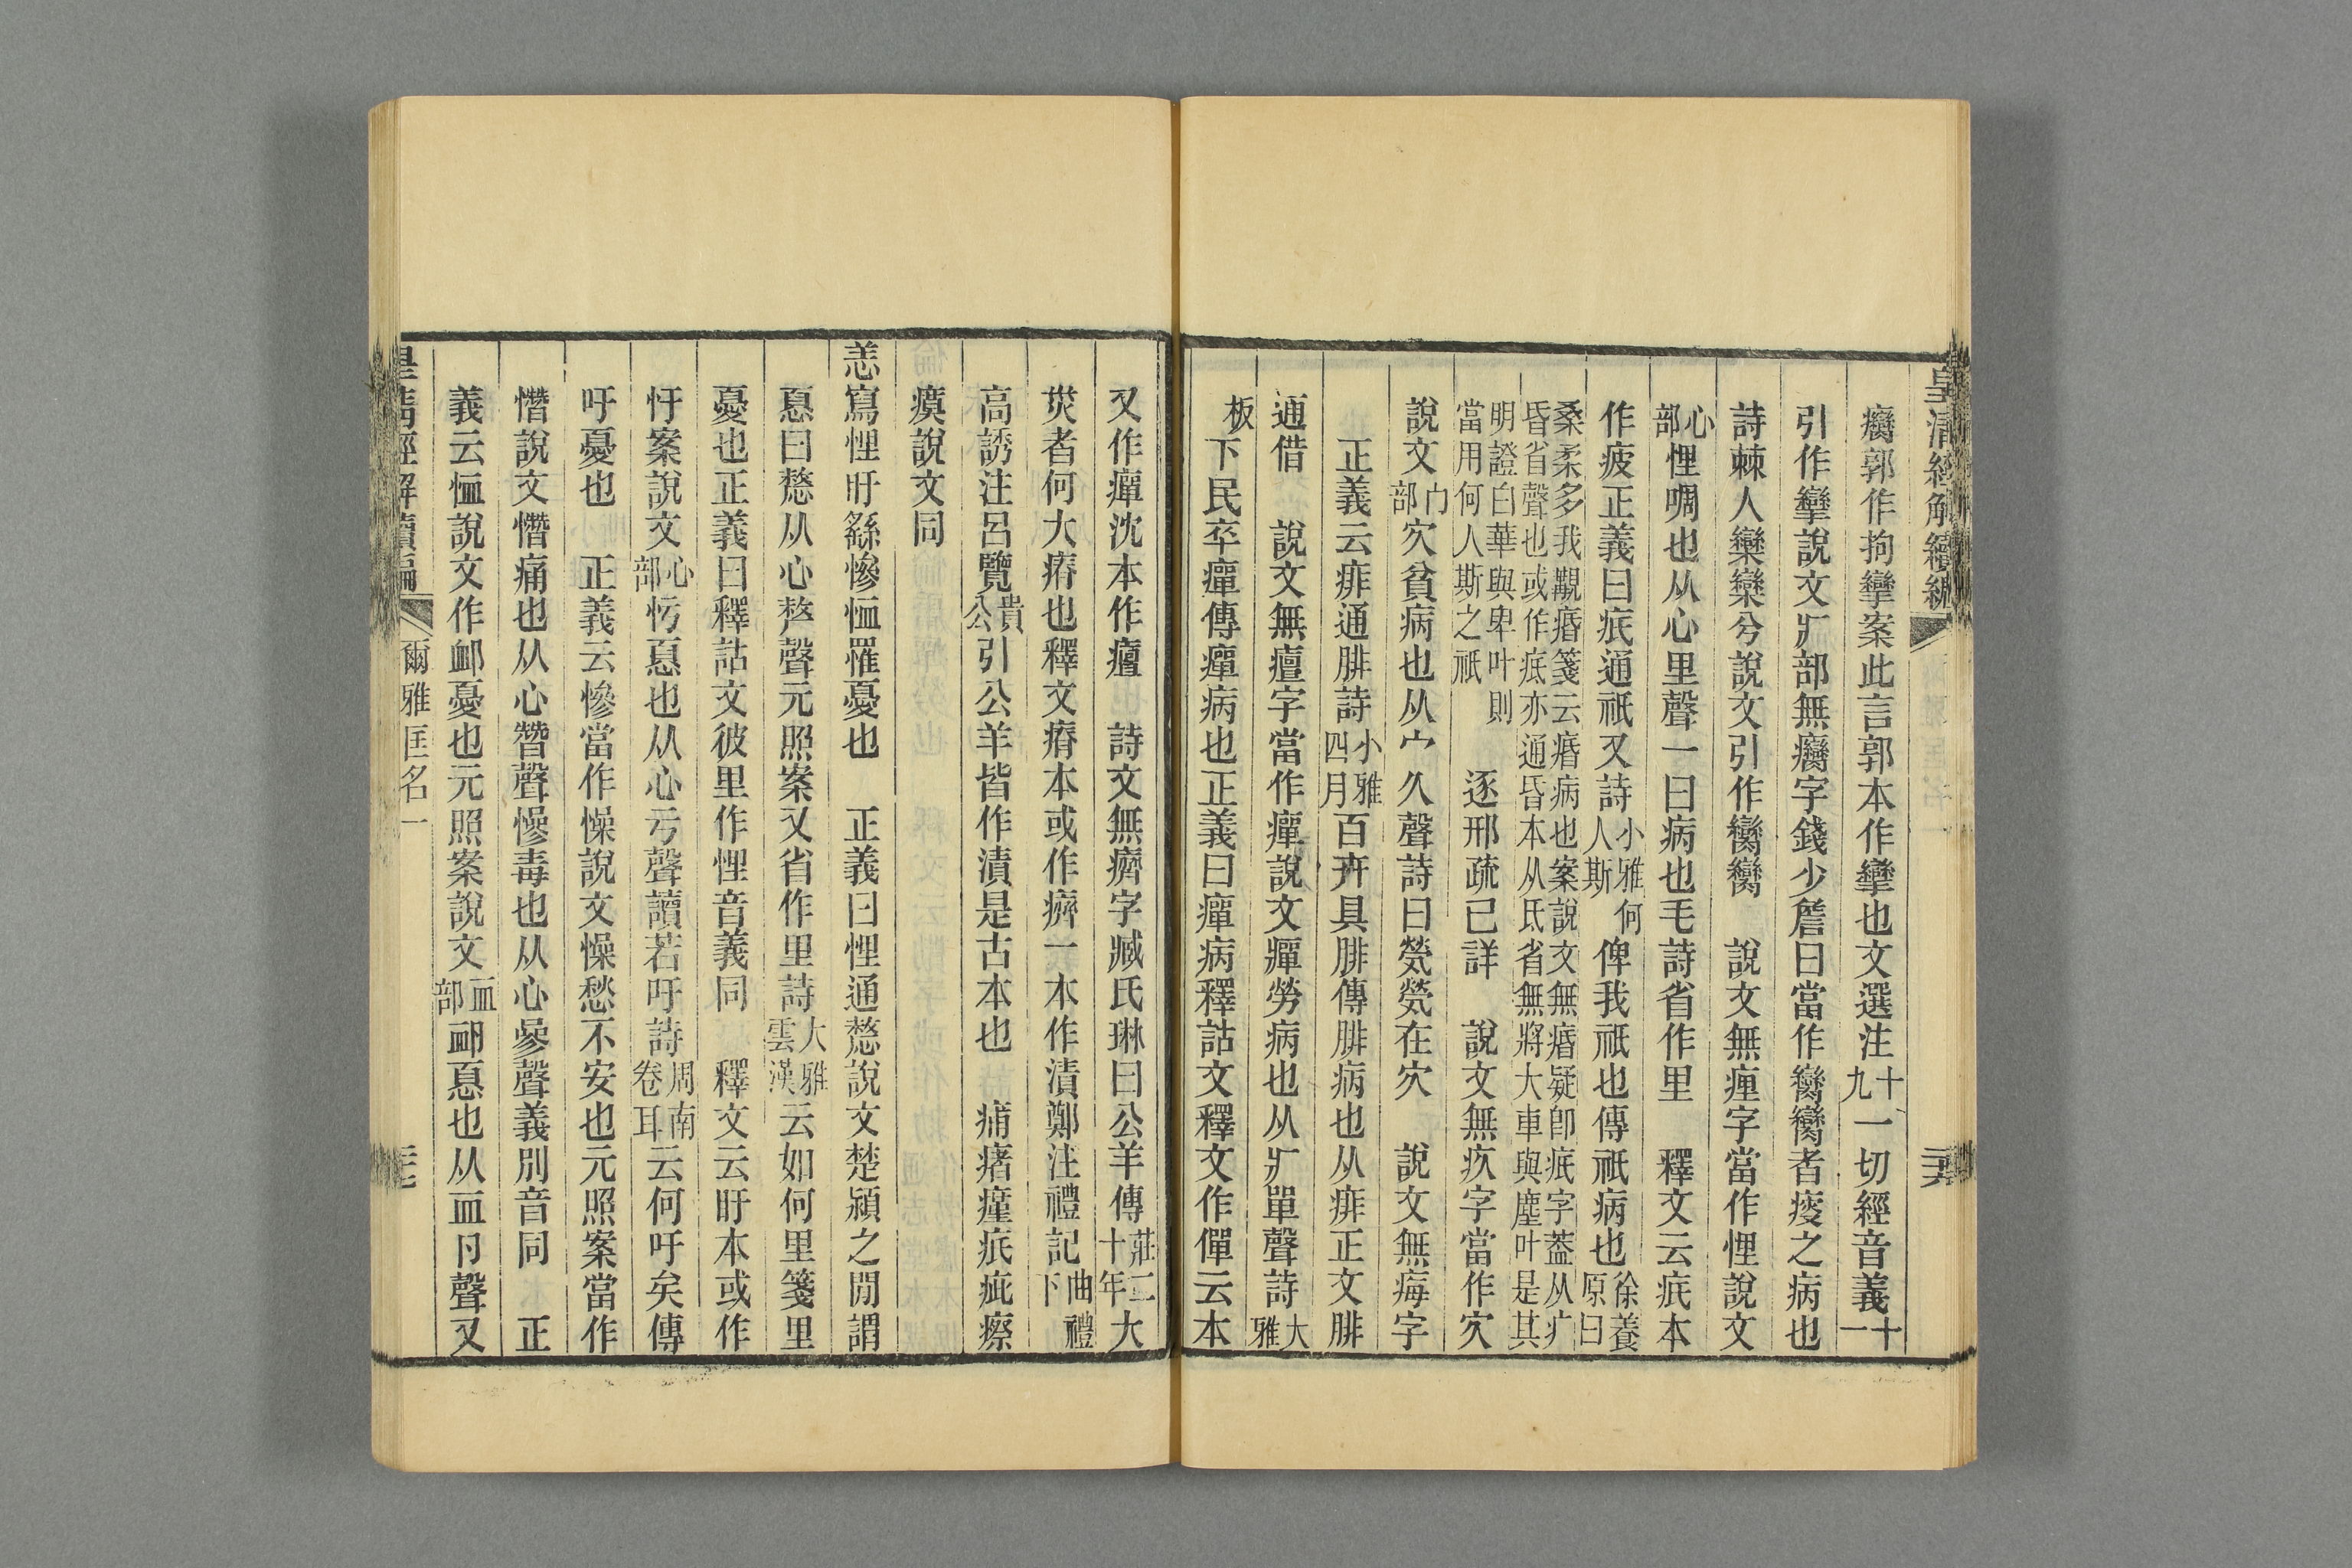 皇清經解續編
癵郭作拘攣案此言郭本作攣也文選注十九一切經音義十一
引作攣說文疒部無癵字錢少詹曰當作臠臠者痠之病也
詩棘人欒欒兮說文引作臠臠　說文無瘇字當作悝說文
心部悝啁也从心里聲一曰病也毛詩省作里　釋文云疧本
作疲正義曰疧通祇又詩小雅何人斯俾我祇也傳祇病也徐養原曰
桑柔多我觀痻箋云痻病也案說文無痻疑卽疧字葢从疒
昏省聲也或作底亦通昏本从氐省無將大車與塵叶是其
明證白華與卑叶則
當用何人斯之祇
逐邢疏已詳　說文無疚字當作㝌
說文宀部㝌貧病也从宀久聲詩曰煢煢在㝌　說文無痗字
正義云痱通腓詩小雅四月百卉具腓傳腓病也从痱正文腓
通借　說文無癉字當作癉說文癉勞病也从疒單聲詩大雅
板下民卒癉傳癉病也正義曰癉病釋詁文釋文作僤云本
又作癉沈本作㿊　詩文無癠字臧氏琳曰公羊傳莊二十年大
烖者何大瘠也釋文瘠本或作癠一本作漬鄭注禮記曲禮下
高誘注呂覽貴公引公羊皆作漬是古本也　痡瘏瘽疧疵瘵
瘼說文同
恙寫悝盱繇慘恤罹憂也　正義曰悝通嫠說文楚潁之閒謂
㥑曰嫠从心𠩺聲元照案又省作里詩大雅雲漢云如何里箋里
憂也正義曰釋詁文彼里作悝音義同　釋文云盱本或作
忬案說文心部忬㥑也从心亏聲讀若吁詩周南卷耳云何吁矣傳
吁憂也　正義云慘當作懆說文懆愁不安也元照案當作
憯說文憯痛也从心朁聲慘毒也从心參聲義別音同　正
義云恤說文作卹憂也元照案說文血部卹㥑也从血卪聲又
皇清經解續編
爾雅匡名一